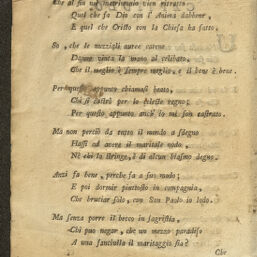 Che al fin nel matrimonio vien ritratto,
Quel che fa Dio con l' Anima dabbene,
E quel che Cristo con la Chiesa ha fatto.
So, che le nuziali auree catene
Danno vinta la mano al celibato,
Che il meglio è sempre meglio, e il bene è bene.
appunto chiamasi beato
Chi si castrò per lo celeste regno;
Per questo appunto anch' io mi son castrato.
Ma non perciò da tutto il mondo a sdegno
Hassi ad avere il maritale nodo,
Nè chi lo stringe, è di alcun biasmo degno.
Anzi fa bene, perchè fa a suo modo;
E poi dormir piuttosto in compagnia,
Che bruciar solo, con San Paolo io lodo.
Ma senza porre il becco in sagristia,
Chi può negar, che un mezzo paradiso
A una fanciulla il maritaggio sia?
Che